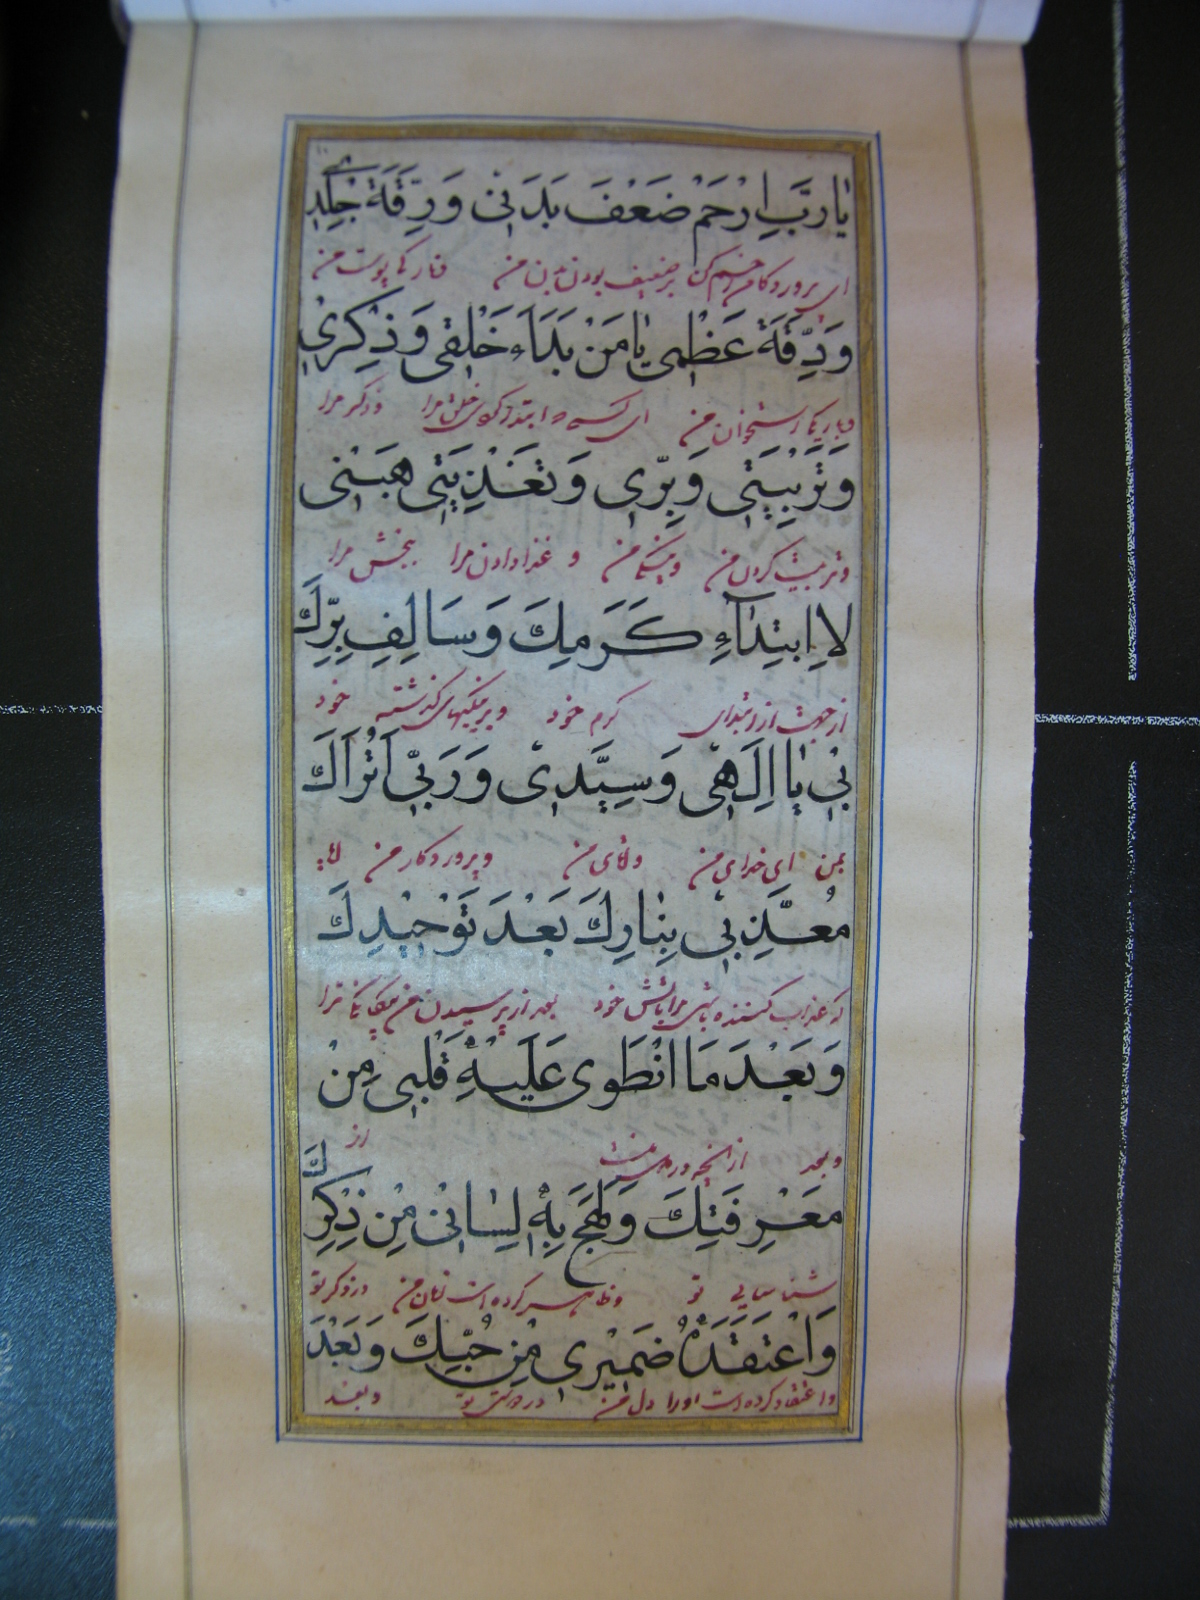 يا رَبِّ اِرْحَمْ ضَعْفَ بَدَنِي وَرِقَّةَ جِلْدِي
ای پروردگار من رحم کن بر ضعیف بودن بدن من و نازکی پوست من
وَدِقَّةَ عَظْمِي يا مَنْ بَدَاَءَ خَلْقِي وَذِكْرِي
و باریکی استخوان من ای کسی که ابتدا کردی خلق مرا و ذکر مرا
وَتَرْبِيَتِي وَبِرِّي وَتَغْذِيَتِي هَبْنِي
و تربیت کردن من و نیکی من و غذا دادن مرا ببخش مرا
لاِابْتِدآءِ كَرَمِكَ وَسَالِفِ بِرِّكَ
از جهت از ابتدای کرم خود و بر نیکیهای گذشته خود
بِي يا اِلَهِي وَسَيِّدِي وَرَبِّي اَتُرَاكَ
بمن ای خدای من و اقای من و پروردگار من
مُعَذِّبِي بِنارِكَ بَعْدَ تَوْحِيدِكَ
که عذاب کننده باشی مرا باتش خود بعد از پرسیدن من بیکانکی ترا
وَبَعْدَ مَا انْطَوى عَلَيْهِ قَلْبِي مِنْ
و بعد از انچه در دل من است از
مَعْرِفَتِكَ وَلَهِجَ بِهِ لِسانِي مِنْ ذِكْرِكَ
شناسایی تو و ظاهر کرده است زبان من در ذکر تو
وَاعْتَقَدَهُ ضَمِيرِي مِنْ حُبِّكَ وَبَعْدَ
و اعتقاد کرده است او را دل من در دوستی تو و بعد